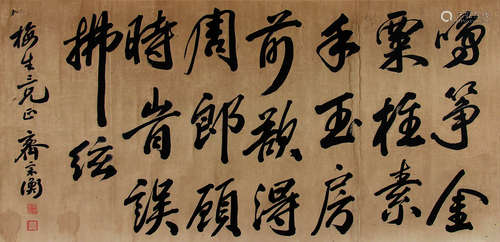 鳴箏金
粟柱素
手玉房
前欲得
周郎顧
時旹誤
拂絃
梅生三兄正 齊